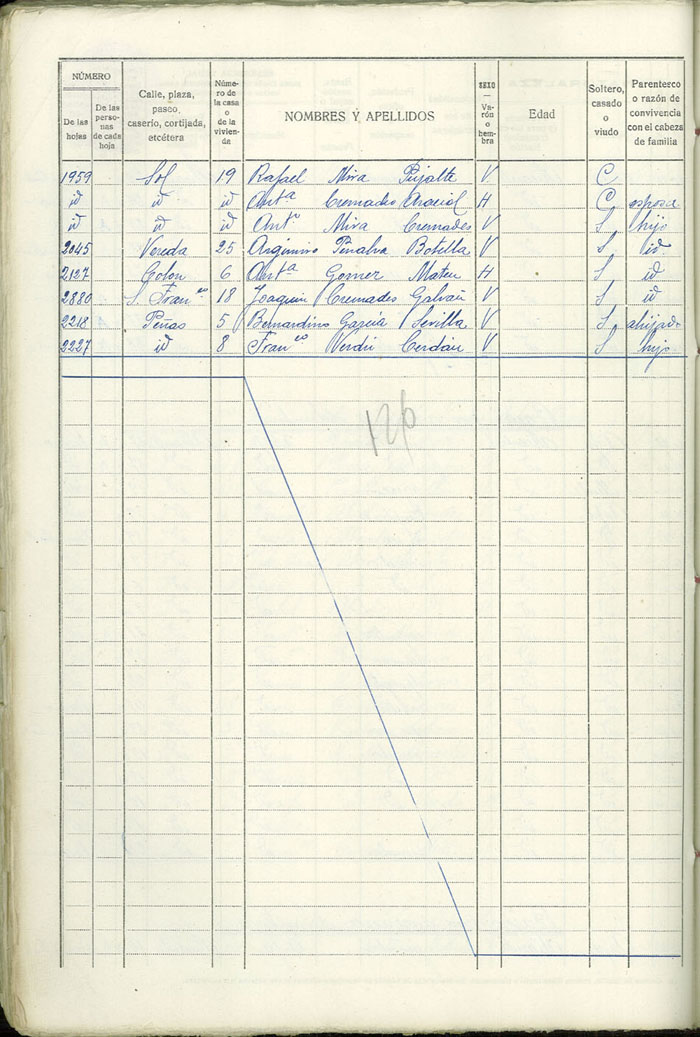 NÚMERO
De las hojas
De las personas de cada hoja
Calle, plaza, paseo, caserío, cortijada, etcétera
Número de la casa o de la vivienda
NOMBRES Y APELLIDOS
SEXO — Varón o hembra
Edad
Soltero, casado o viudo
Parentesco o razón de convivencia con el cabeza de familia
1959 Sol 19 Rafael Mira Pujalte V C
id id id Antª Cremades H C esposa
id id id Antº Mira Cremades V S hijo
2045 Vereda 25 Argimiro Peñalva Botella V S id
2127 Colon 6 Antª Gomez Mateu H S id
2880 S. Franco 18 Joaquin Cremades Galvañ V S id
2218 Peñas 5 Bernardino García Sevilla V S ahijado
2227 id 8 Franco Verdú Cerdán V S hijo
126